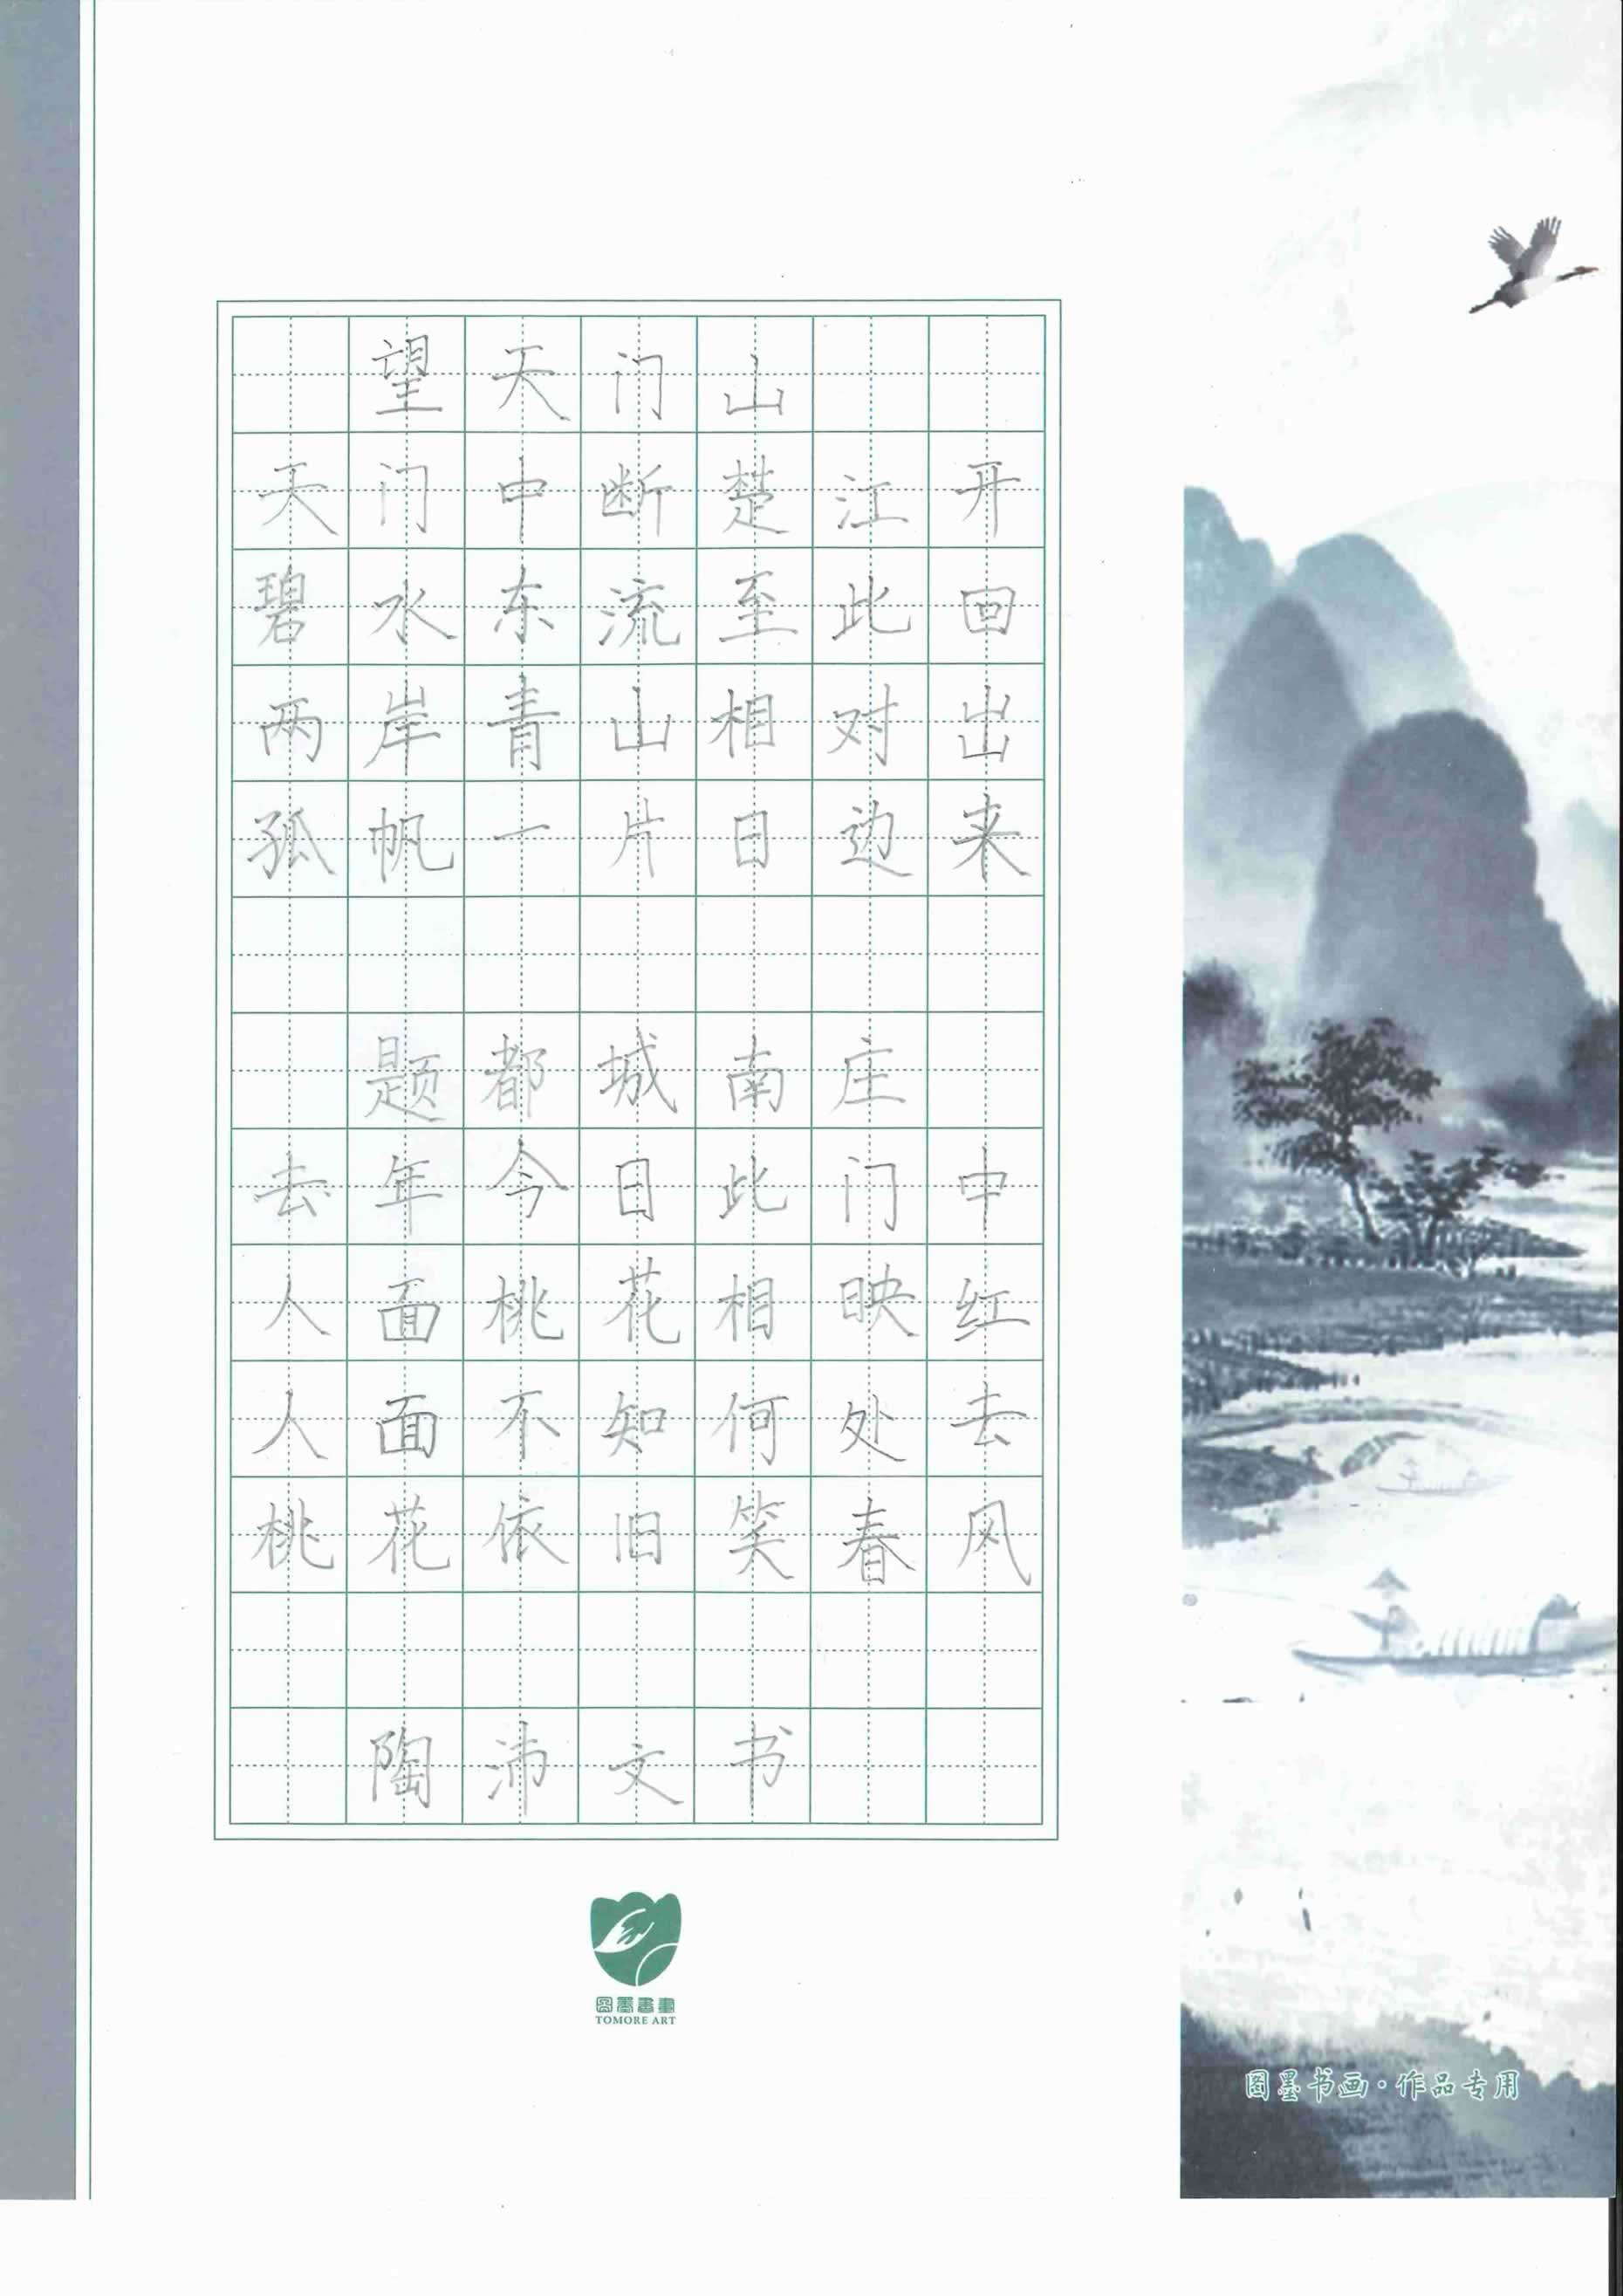 望天门山
天门中断楚江开
碧水东流至此回
两岸青山相对出
孤帆一片日边来
题都城南庄
去年今日此门中
人面桃花相映红
人面不知何处去
桃花依旧笑春风
陶沛文书
圖墨書畫
TOMORE ART
图墨书画·作品专用